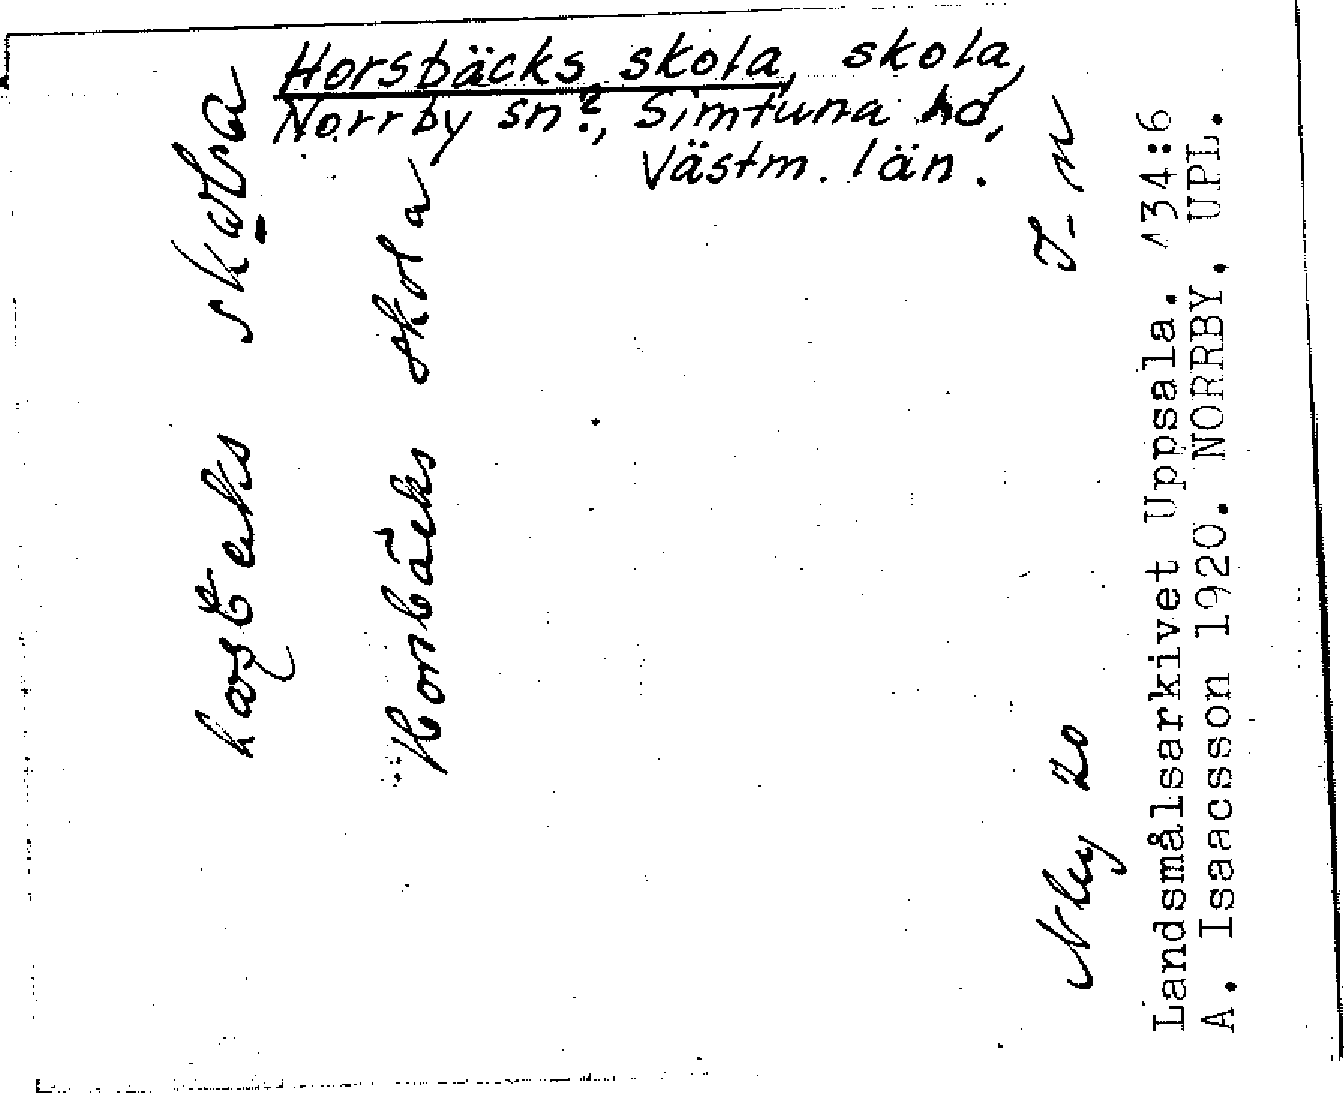 Horsbäcks skola, skola,
Norrby sn?, Simtuna hd,
Västm. län.
skola
Horsbäcks skola
Nby 20 I-n
Landsmålsarkivet Uppsala. 134:6
A. Isaacsson 1920. NORRBY. UPL.